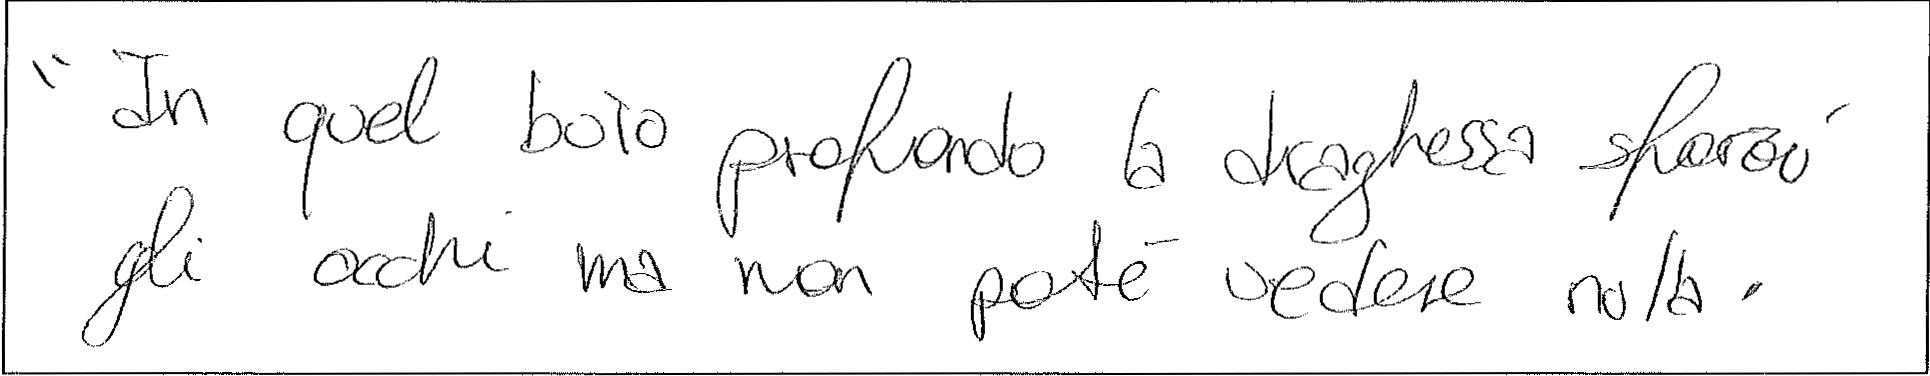 "In quel buio profondo la draghessa sforzò
gli occhi ma non poté vedere nulla.